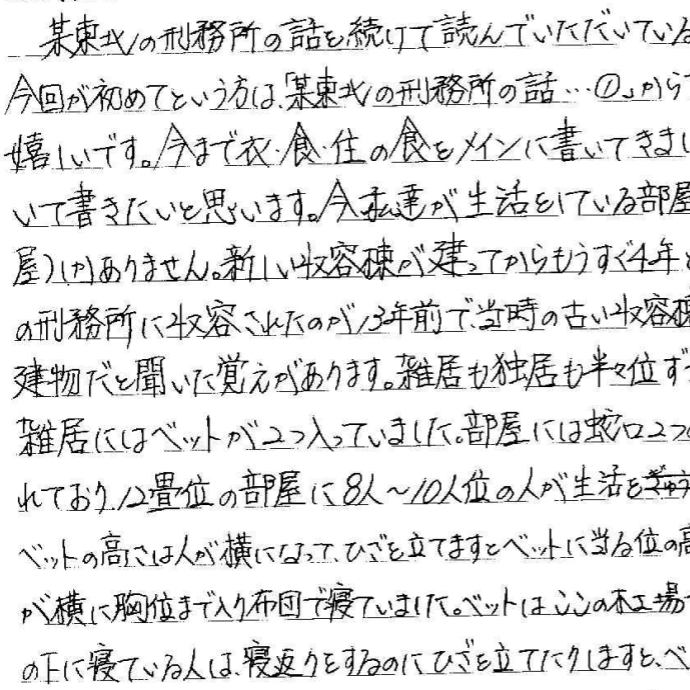 某東北の刑務所の話を続けて読んでいただいている
今回が初めてという方は、「某東北の刑務所の話…①」から
嬉しいです。今まで衣・食・住の食をメインに書いてきまし
いて書きたいと思います。今私達が生活をしている部屋
屋)しかありません。新しい収容棟が建ってからもうすぐ4年と
の刑務所に収容されたのが13年前で、当時の古い収容棟
建物だと聞いた覚えがあります。雑居も独居も半々位ずつ
雑居にはベットが2つ入っていました。部屋には蛇口2つ
れており、12畳位の部屋に8人〜10人位の人が生活を
ベットの高さは人が横になって、ひざを立てますとベットに当る位の高
が横に胸位まで入り布団で寝ていました。ベットはここの木工場
の下に寝ている人は、寝返りをするのにひざを立てたりしますと、ベ